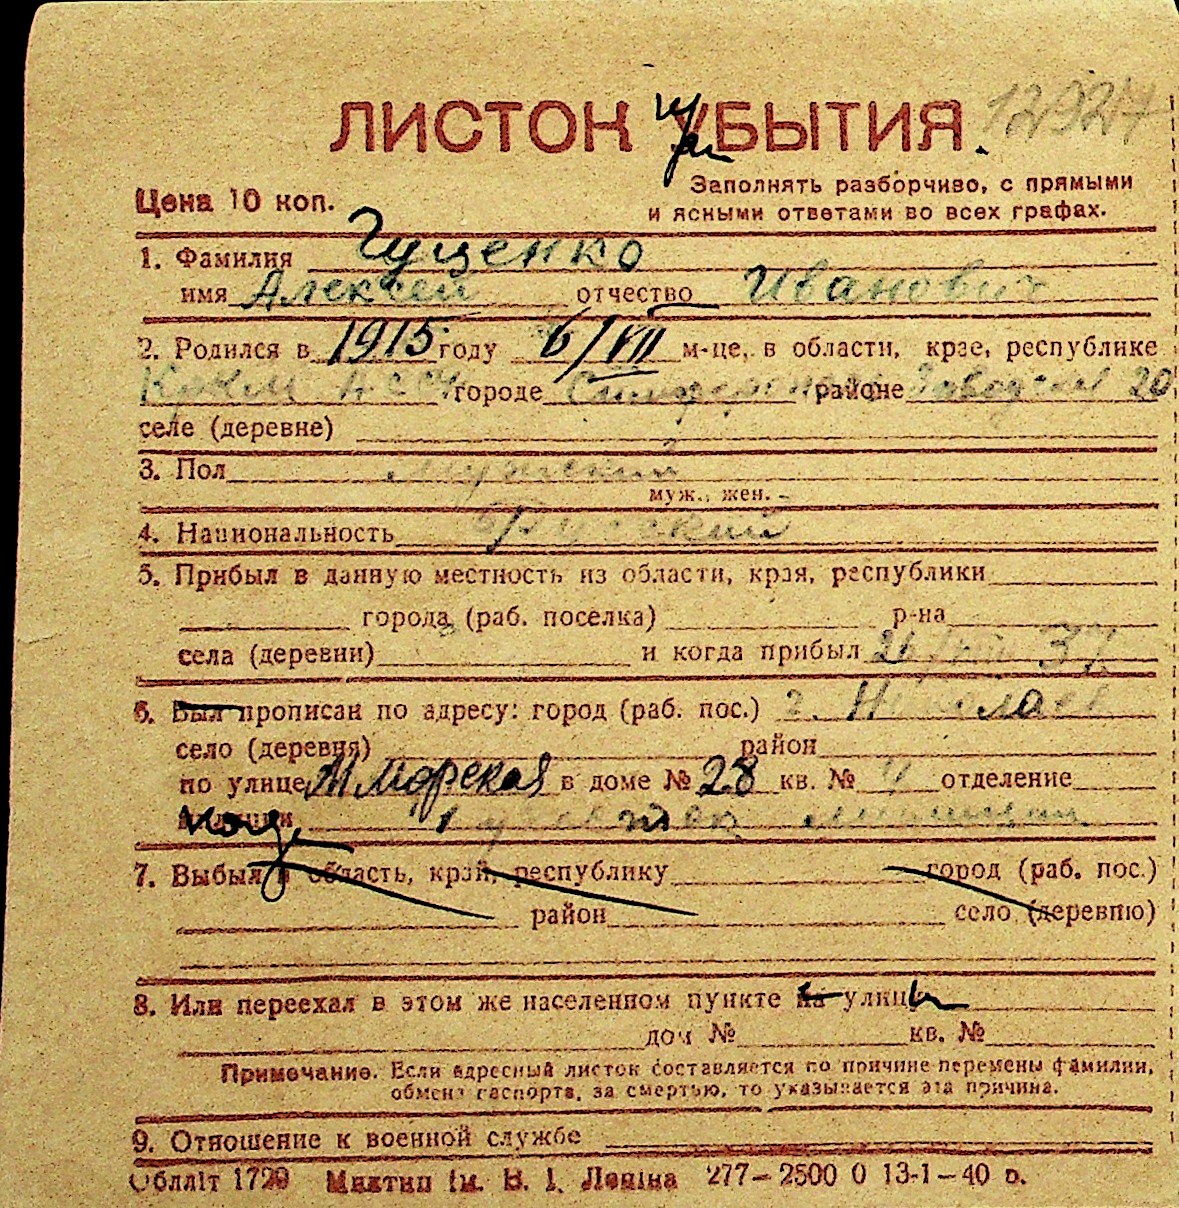 12924
ЛИСТОК УБЫТИЯ
Цена 10 коп.
Заполнять разборчиво, с прямыми
и ясными ответами во всех графах.
1. Фамилия Гущенко
имя Алексей отчество Иванович
2. Родился в 1915 году 6/VII м-це, в области, крае, республике
Крым АССР городе Симферополь районе Заводская 20
селе (деревне)
3. Пол мужской
муж., жен.
4. Национальность Русский
5. Прибыл в данную местность из области, края, республики
города (раб. поселка) р-на
села (деревни) и когда прибыл 26/VIII 37
6. Был прописан по адресу: город (раб. пос.) г. Николаев
село (деревня) район
по улице М Морская в доме № 28 кв. № 4 отделение
1 участок милиции
7. Выбыл в область, край, республику город (раб. пос.)
район село (деревню)
8. Или переехал в этом же населенном пункте на улицу
дом № кв. №
Примечание. Если адресный листок составляется по причине перемены фамилии,
обмена паспорта, за смертью, то указывается эта причина.
9. Отношение к военной службе
Облліт 1729 Миктип ім. В. І. Леніна 277—2500 0 13-1—40 о.